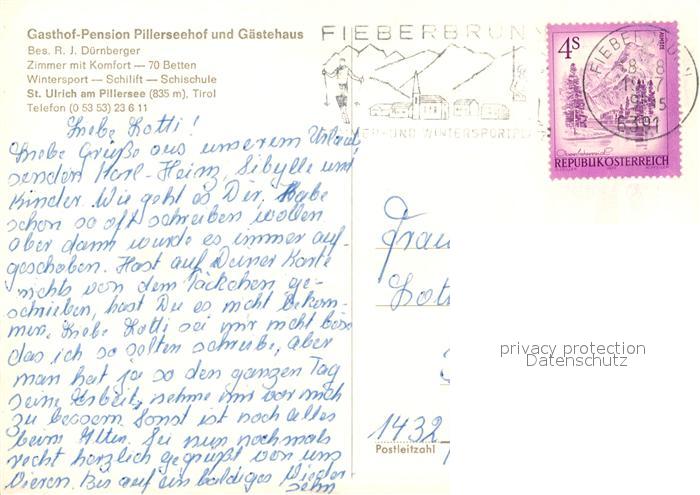 Gasthof-Pension Pillerseehof und Gästehaus
Bes. R. J. Dürnberger
Zimmer mit Komfort — 70 Betten
Wintersport — Schilift — Schischule
St. Ulrich am Pillersee (835 m), Tirol
Telefon (0 53 53) 23 6 11
FIEBERBRUNN
UND WINTERSPORTPL
4 S
REPUBLIK ÖSTERREICH
FIEBERBRUNN
6391
Liebe Lotti!
Liebe Grüße aus unserem Urlaub
senden Karl-Heinz, Sibylle und
Kinder. Wie geht es Dir. Habe
schon so oft schreiben wollen
aber dann wurde es immer auf-
geschoben. Hast auf Deiner Karte
nichts von dem Päckchen ge-
schrieben, hast Du es nicht bekom-
men. Liebe Lotti sei mir nicht böse
das ich so selten schreibe, aber
man hat ja so den ganzen Tag
seine Arbeit, nehme mir vor mich
zu bessern. Sonst ist noch alles
beim Alten. Sei nun nochmals
recht herzlich gegrüßt von uns
Vieren. Bis auf ein baldiges Wieder-
sehn
Frau
Lot
1432
Postleitzahl
privacy protection
Datenschutz